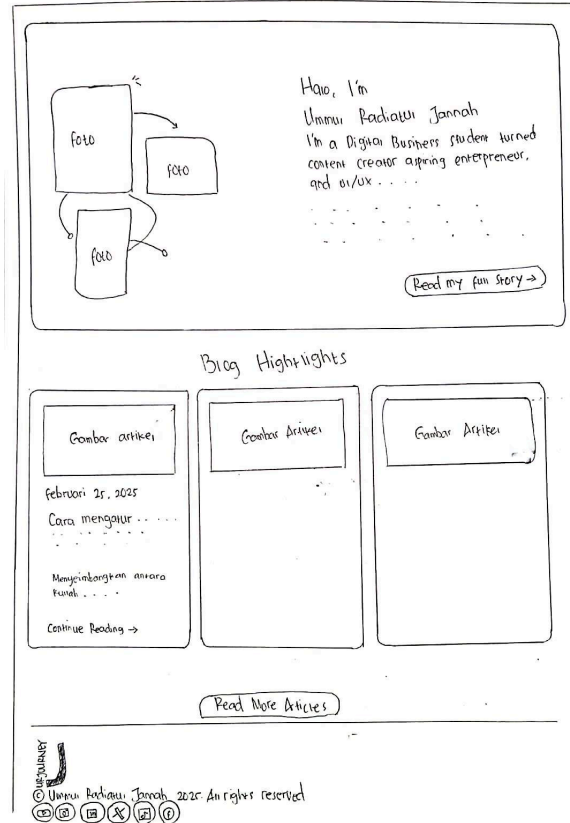 Halo, I'm
Ummul Radiatul Jannah
I'm a Digital Business student turned
content creator aspiring enterpreneur,
and UI/UX . . . .
foto
foto
foto
Read my full story →
Blog Highlights
Gambar artikel
Februari 25, 2025
Cara mengatur . . . . .
Menyeimbangkan antara
kuliah . . . .
Continue Reading →
Gambar Artikel
Gambar Artikel
Read More Articles
URJOURNEY
J
© Ummul Radiatul Jannah 2025. All rights reserved
in X f